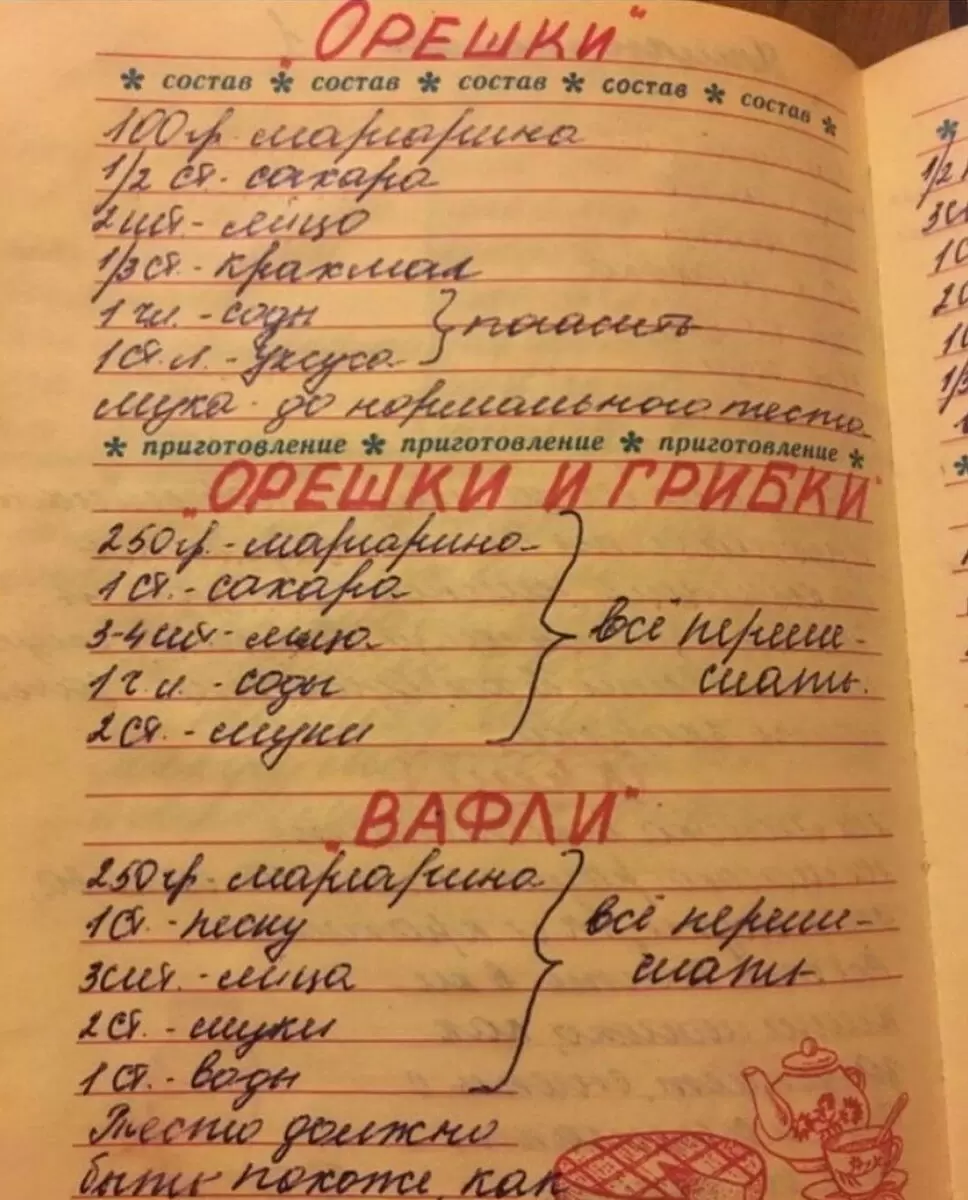 "ОРЕШКИ"
* состав * состав * состав * состав * состав *
100 гр. маргарина
1/2 ст. - сахара
2 шт. - яйцо
1/3 ст. - крахмал
1 ч.л. - соды } погасить
1 ст. л. - уксуса
мука - до нормального теста
* приготовление * приготовление * приготовление *
"ОРЕШКИ И ГРИБКИ"
250 гр. - маргарина
1 ст. - сахара
3-4 шт. - яйца } всё переме-
1 ч. л. - соды шать.
2 ст. - муки
"ВАФЛИ"
250 гр. - маргарина
1 ст. - песку } всё переме-
3 шт. - яйца шать.
2 ст. - муки
1 ст. - воды
Тесто должно
быть похоже, как
1/2
*